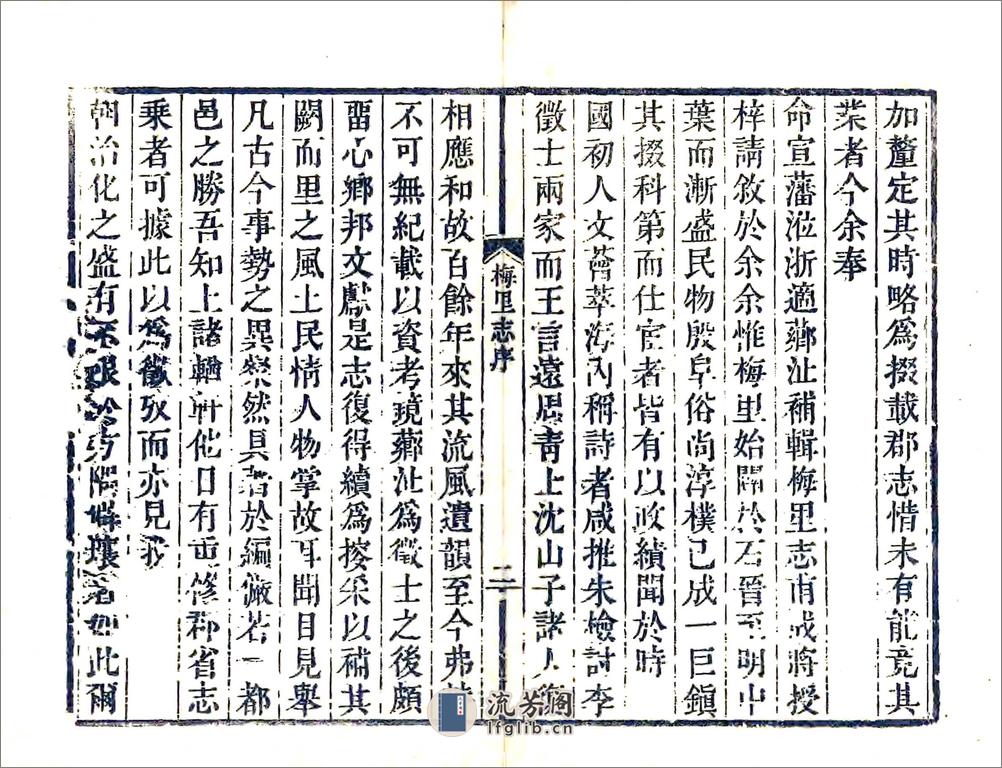 加釐定其時略爲掇載郡志惜未有能竟其
業者今余奉
命宣藩涖浙適薌沚補輯梅里志甫成將授
梓請敘於余余惟梅里始闢於石晉至明中
葉而漸盛民物殷阜俗尚淳樸已成一巨鎮
其掇科第而仕宦者皆有以政績聞於時
國初人文薈萃海內稱詩者咸推朱檢討李
徵士兩家而王言遠周青士沈山子諸人
梅里志序
二
相應和故百餘年來其流風遺韻至今弗
不可無紀載以資考鏡薌沚爲徵士之後頗
畱心鄉邦文獻是志復得續爲按采以補其
闕而里之風土民情人物掌故耳聞目見舉
凡古今事勢之異粲然具著於編儼若一都
邑之勝吾知上諸輶軒他日有重修郡省志
乘者可據此以爲徵攷而亦見我
朝治化之盛有不限於方隅 壤者如此爾
流芳閣
lfglib.cn